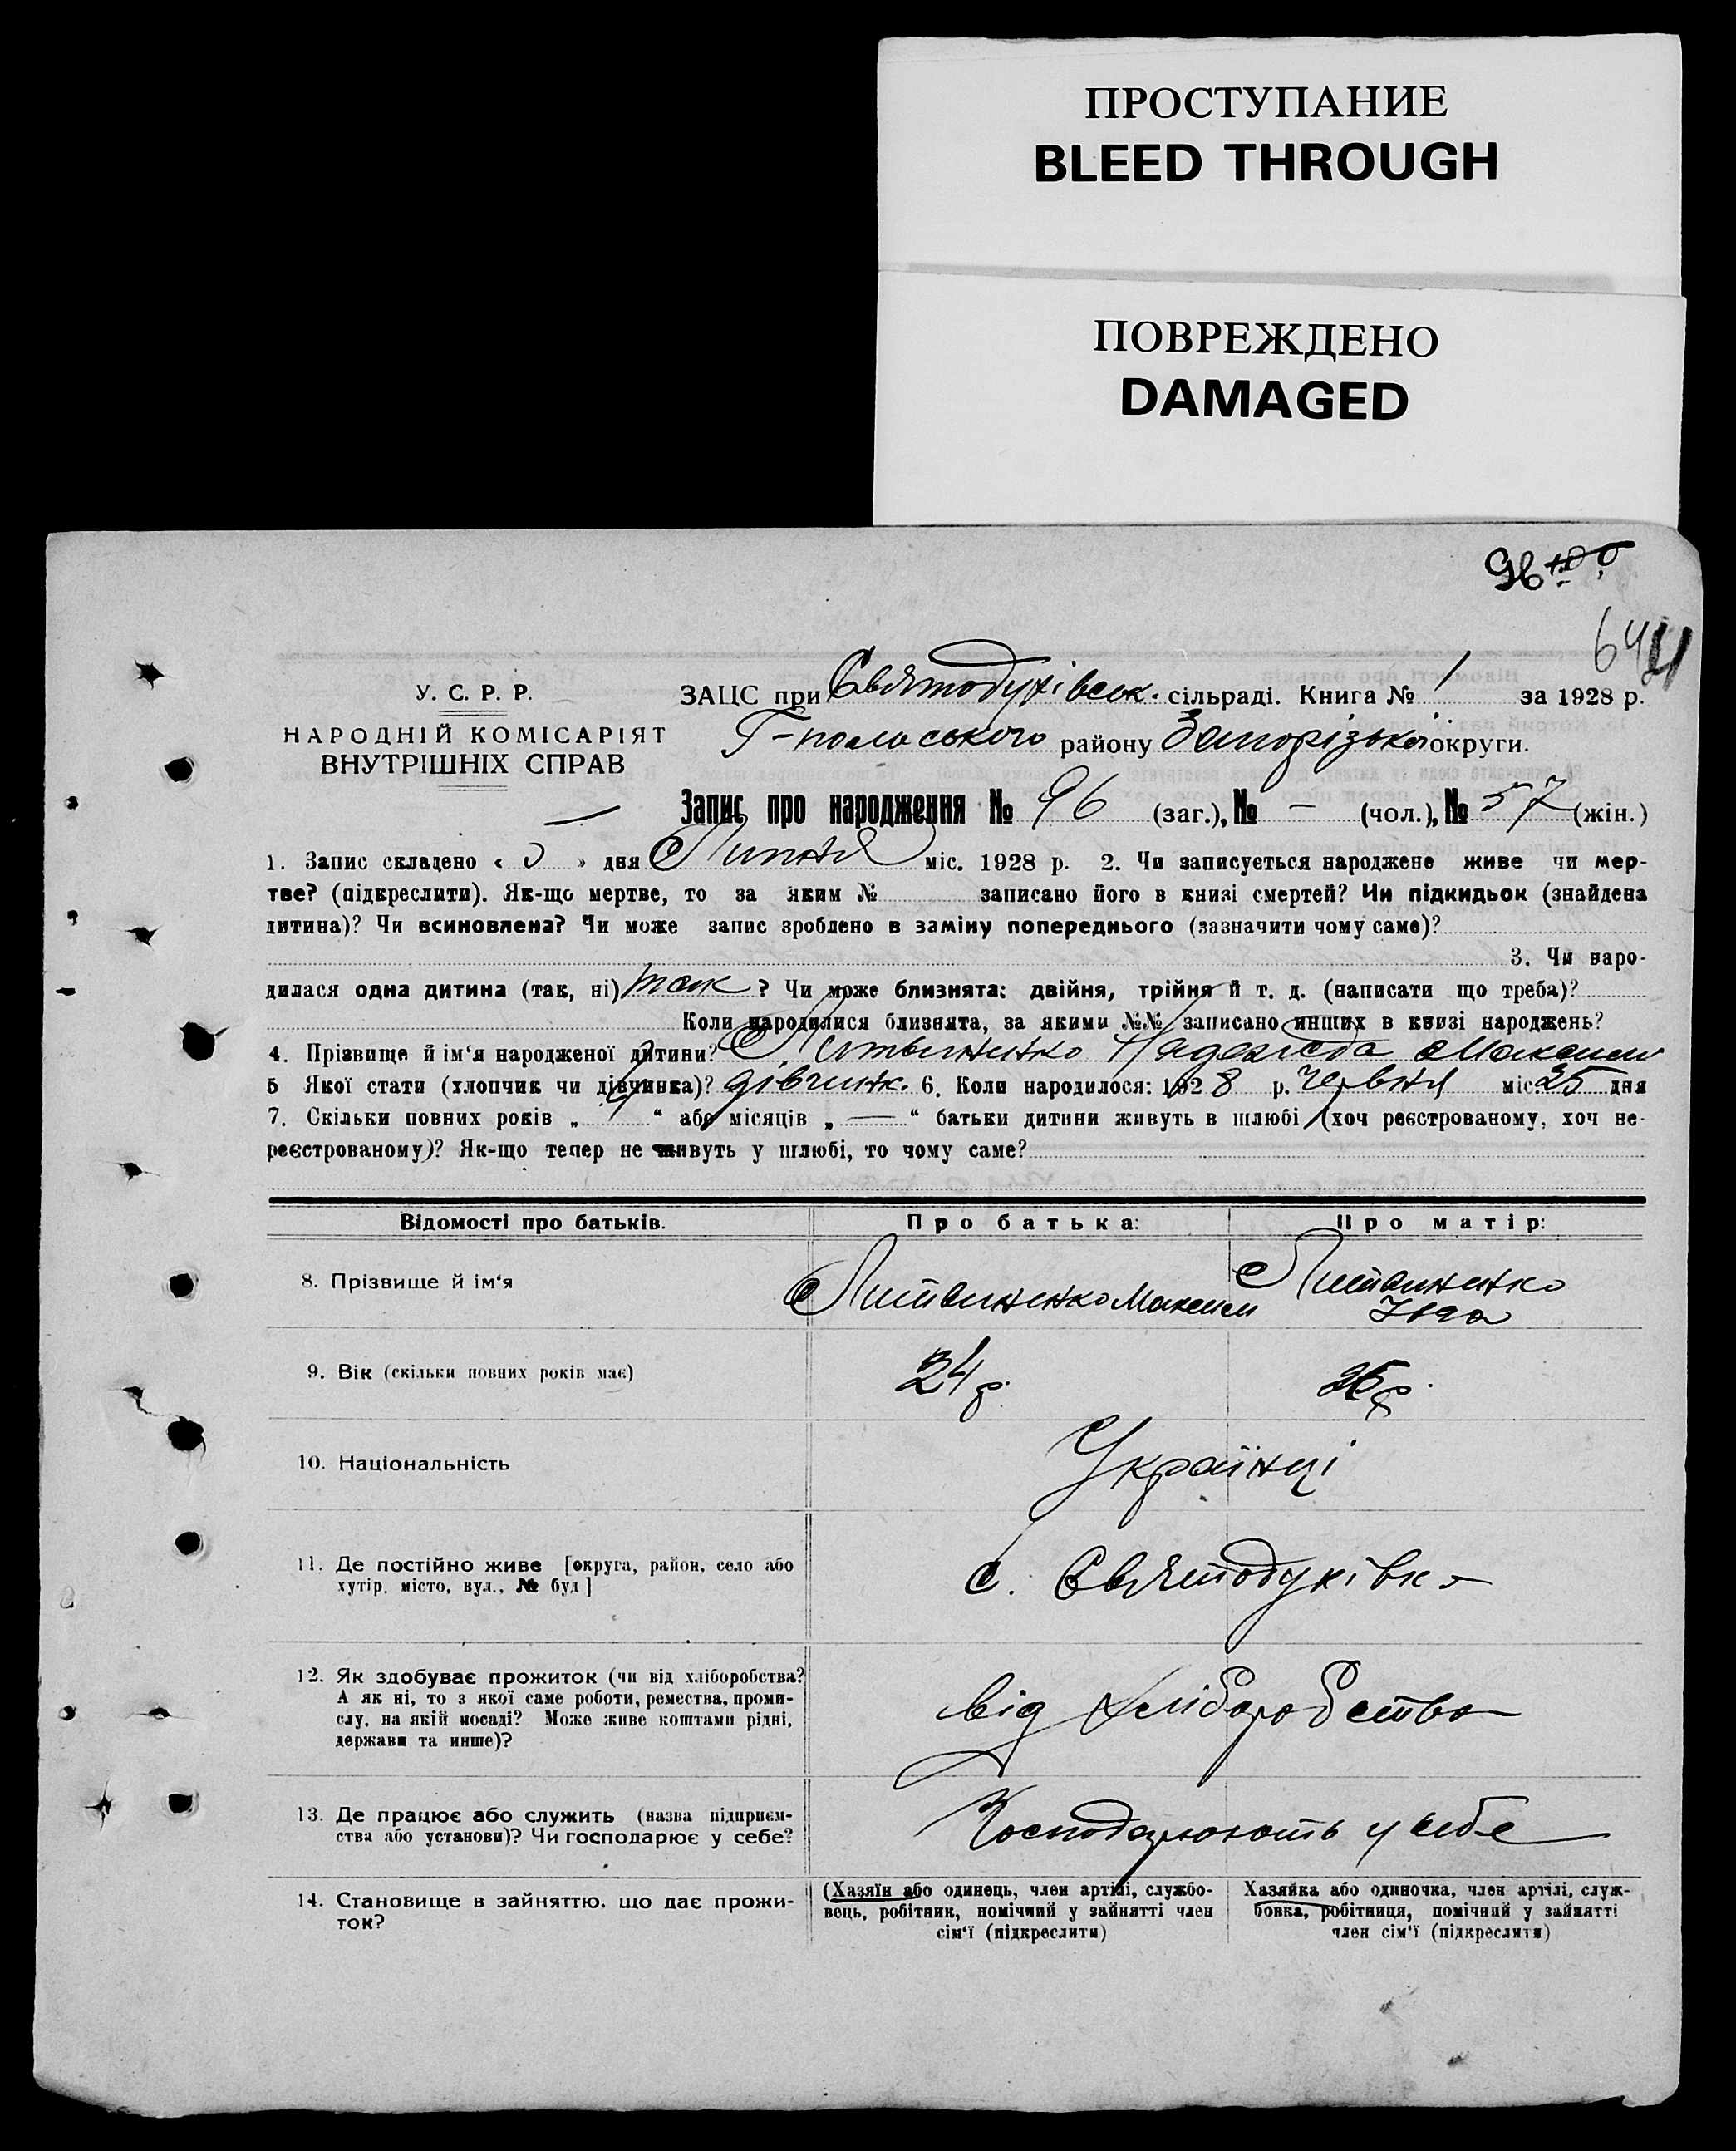 ПРОСТУПАНИЕ
BLEED THROUGH
ПОВРЕЖДЕНО
DAMAGED
96
У. С. Р. Р.
НАРОДНІЙ КОМІСАРІЯТ
ВНУТРІШНІХ СПРАВ
ЗАЦС при Святодухівськ. сільраді. Книга № 1 за 1928 р.
Г-польського району Запорізької округи.
Запис про народження № 96 (заг.), № — (чол.), № 57 (жін.)
1. Запис складено « » дня Липня міс. 1928 р. 2. Чи записується народжене живе чи мер-
тве? (підкреслити). Як-що мертве, то за яким № записано його в книзі смертей? Чи підкидьок (знайдена
дитина)? Чи всиновлена? Чи може запис зроблено в заміну попереднього (зазначити чому саме)?
3. Чи наро-
дилася одна дитина (так, ні) так ? Чи може близнята: двійня, трійня й т. д. (написати що треба)?
Коли народилися близнята, за якими №№ записано инших в книзі народжень?
4. Прізвище й ім‘я народженої дитини? Литвиненко Надежда Максим
5 Якої стати (хлопчик чи дівчинка)? дівчинк. 6. Коли народилося: 1928 р. червня міс. 25 дня
7. Скільки повних років „ “ або місяців „ — “ батьки дитини живуть в шлюбі (хоч реєстрованому, хоч не-
реєстрованому)? Як-що тепер не живуть у шлюбі, то чому саме?
Відомості про батьків. Про батька: Про матір:
8. Прізвище й ім‘я Литвиненко Максим Литвиненко
9. Вік (скільки повних років має) 24 р. 26 р.
10. Національність Українці
11. Де постійно живе [округа, район, село або
хутір, місто, вул., № буд] с. Святодухівка
12. Як здобуває прожиток (чи від хліборобства?
А як ні, то з якої саме роботи, ремества, проми-
слу, на якій посаді? Може живе коштами рідні,
держави та инше)? від хліборобства
13. Де працює або служить (назва підприєм-
ства або установи)? Чи господарює у себе? Господарюють у себе
14. Становище в зайняттю, що дає прожи-
ток?
(Хазяїн або одинець, член артілі, службо-
вець, робітник, помічний у зайнятті член
сім‘ї (підкреслити)
Хазяйка або одиночка, член артілі, служ-
бовка, робітниця, помічний у зайнятті
член сім‘ї (підкреслити)